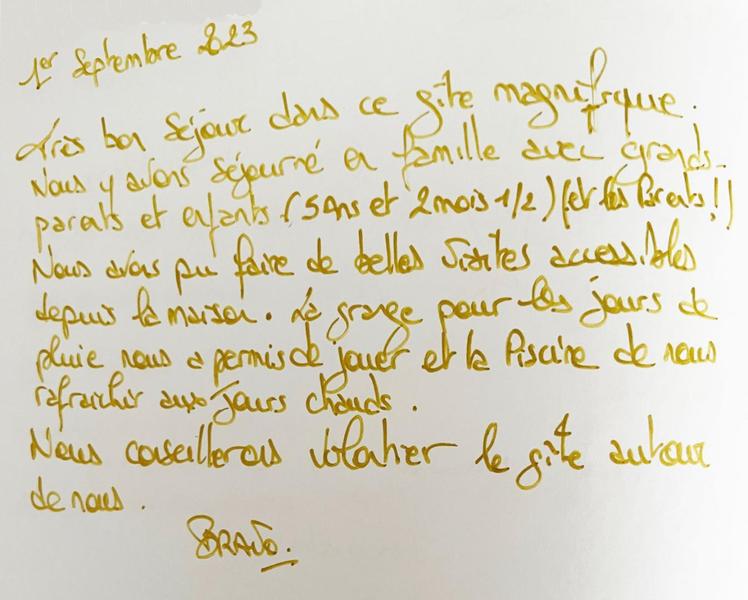 1er Septembre 2023
Très bon séjour dans ce gîte magnifique.
Nous y avons séjourné en famille avec grands-
parents et enfants (5 Ans et 2 mois 1/2) (et les Parents!!)
Nous avons pu faire de belles visites accessibles
depuis la maison. La grange pour les jours de
pluie nous a permis de jouer et la Piscine de nous
rafraichir aux jours chauds.
Nous conseillerons volontier le gîte autour
de nous.
BRAVO.